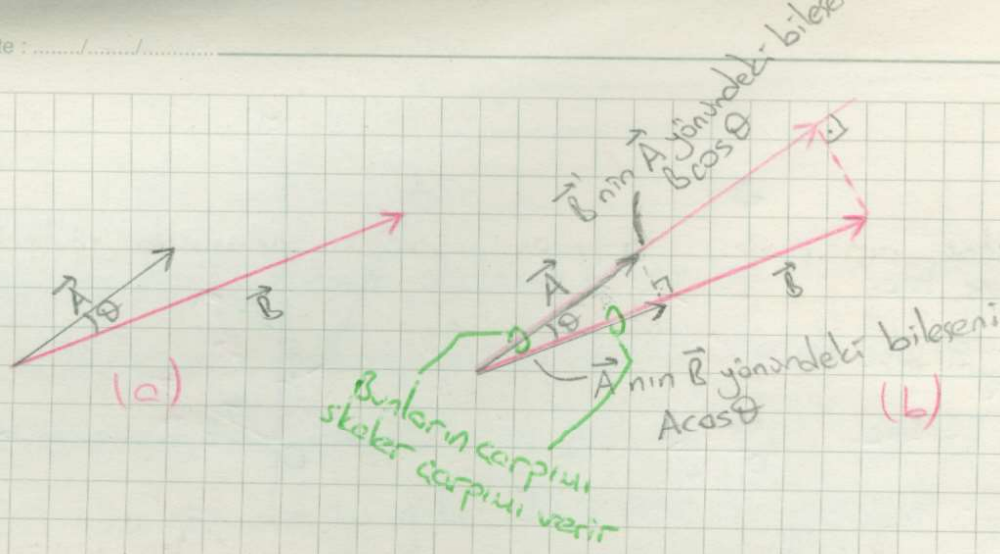 te : ......./......./............
B'nin A yönündeki bileşe
B cos θ
A
θ
B
(a)
A
θ
B
A nın B yönündeki bileşeni
A cos θ
(b)
Bunların çarpımı
skaler çarpımı verir